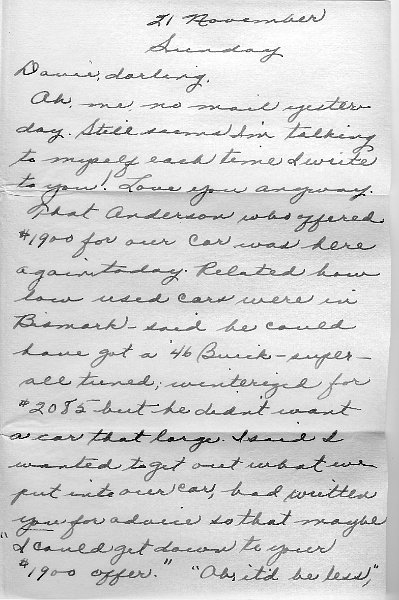 21 November
Sunday
Davie, darling.
Ah me no mail yester-
day. Still seems I'm talking
to myself each time I write
to you! Love you anyway.
That Anderson who offered
$1900 for our car was here
again today. Related how
low used cars were in
Bismark - said he could
have got a '46 Buick - super -
all tuned, winterized for
$2085 but he didn't want
a car that large. I said I
wanted to get out what we
put into our car, had written
you for advice so that maybe
"I could get down to your
$1900 offer." "Oh, it'd be less,"